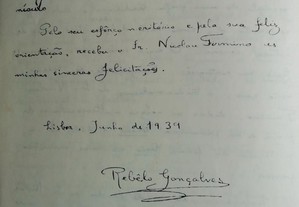 Pelo seu esfôrço meritório e pela sua feliz
orientação, receba o Sr. Nicolau Firmino as
minhas sinceras felicitações.
Lisboa, Junho de 1939
Rebêlo Gonçalves